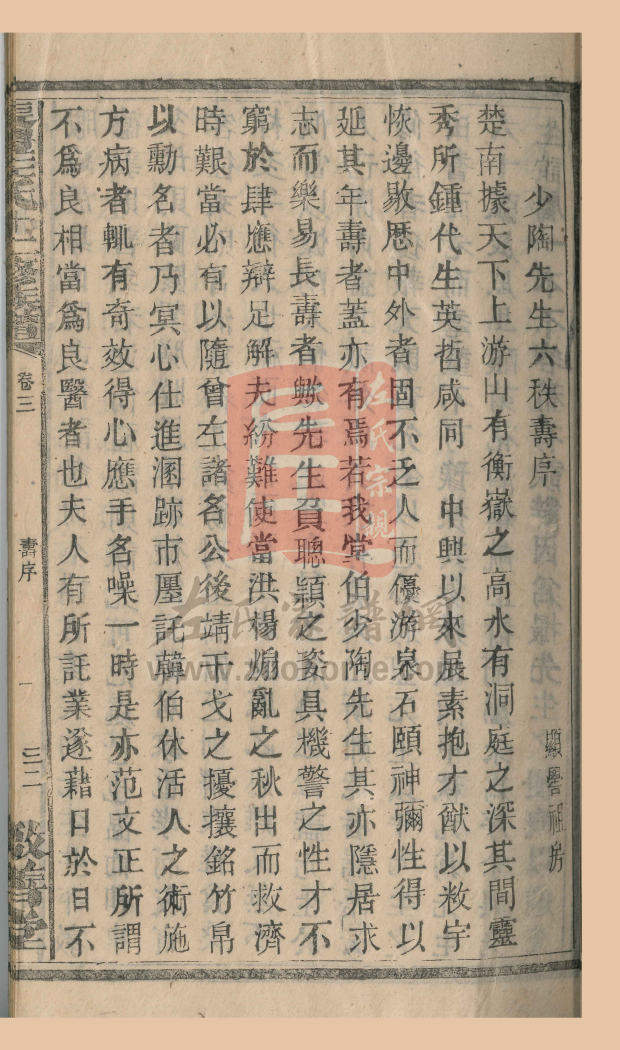 少陶先生六秩壽序 顯譽祖房
楚南據天下上游山有衡嶽之高水有洞庭之深其間靈
秀所鍾代生英哲咸同 中興以來展素抱才猷以敉宇
恢邊敭歷中外者固不乏人而優游泉石頤神彌性得以
延其年壽者蓋亦有焉若我堂伯少陶先生其亦隱居求
志而樂易長壽者歟先生負聰穎之姿具機警之性才不
窮於肆應辯足解夫紛難使當洪楊煽亂之秋出而救濟
時艱當必有以隨曾左諸名公後靖干戈之擾攘銘竹帛
以勳名者乃冥心仕進溷跡市廛託韓伯休活人之術施
方病者輒有奇效得心應手名噪一時是亦范文正所謂
不爲良相當爲良醫者也夫人有所託業遂藉口於日不
卷三
壽序
一
三二
敦善堂
左氏宗譜網
www.zuozome.com